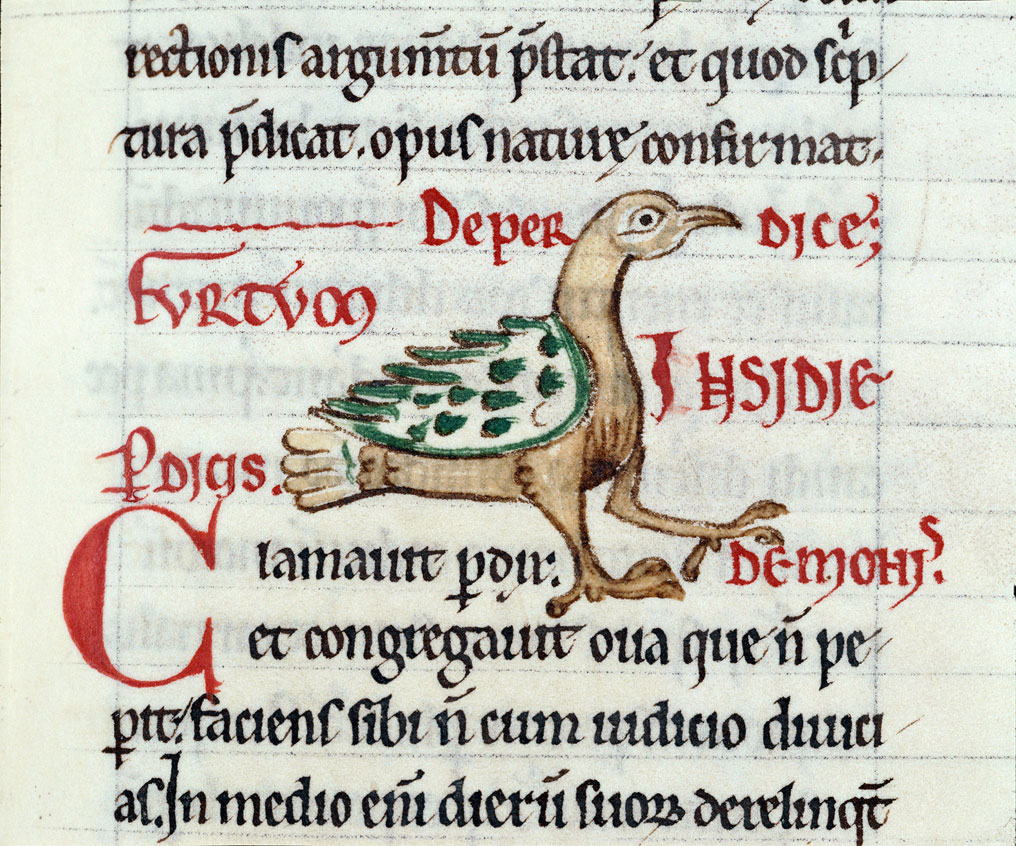 rectionis argum̄tū p̄stat. et quod sc̓p
tura p̄dicat. opus naturę confirmat.
De per dice;
FURTUM INSIDIE
ꝑdicis. DEMONIˢ.
Clamavit ꝑdix.
et congregavit ova que n̄ pe
perit. faciens sibi n̄ cum iudicio divici
as. In medio eni̅ dierū suoꝝ derelinqt̄